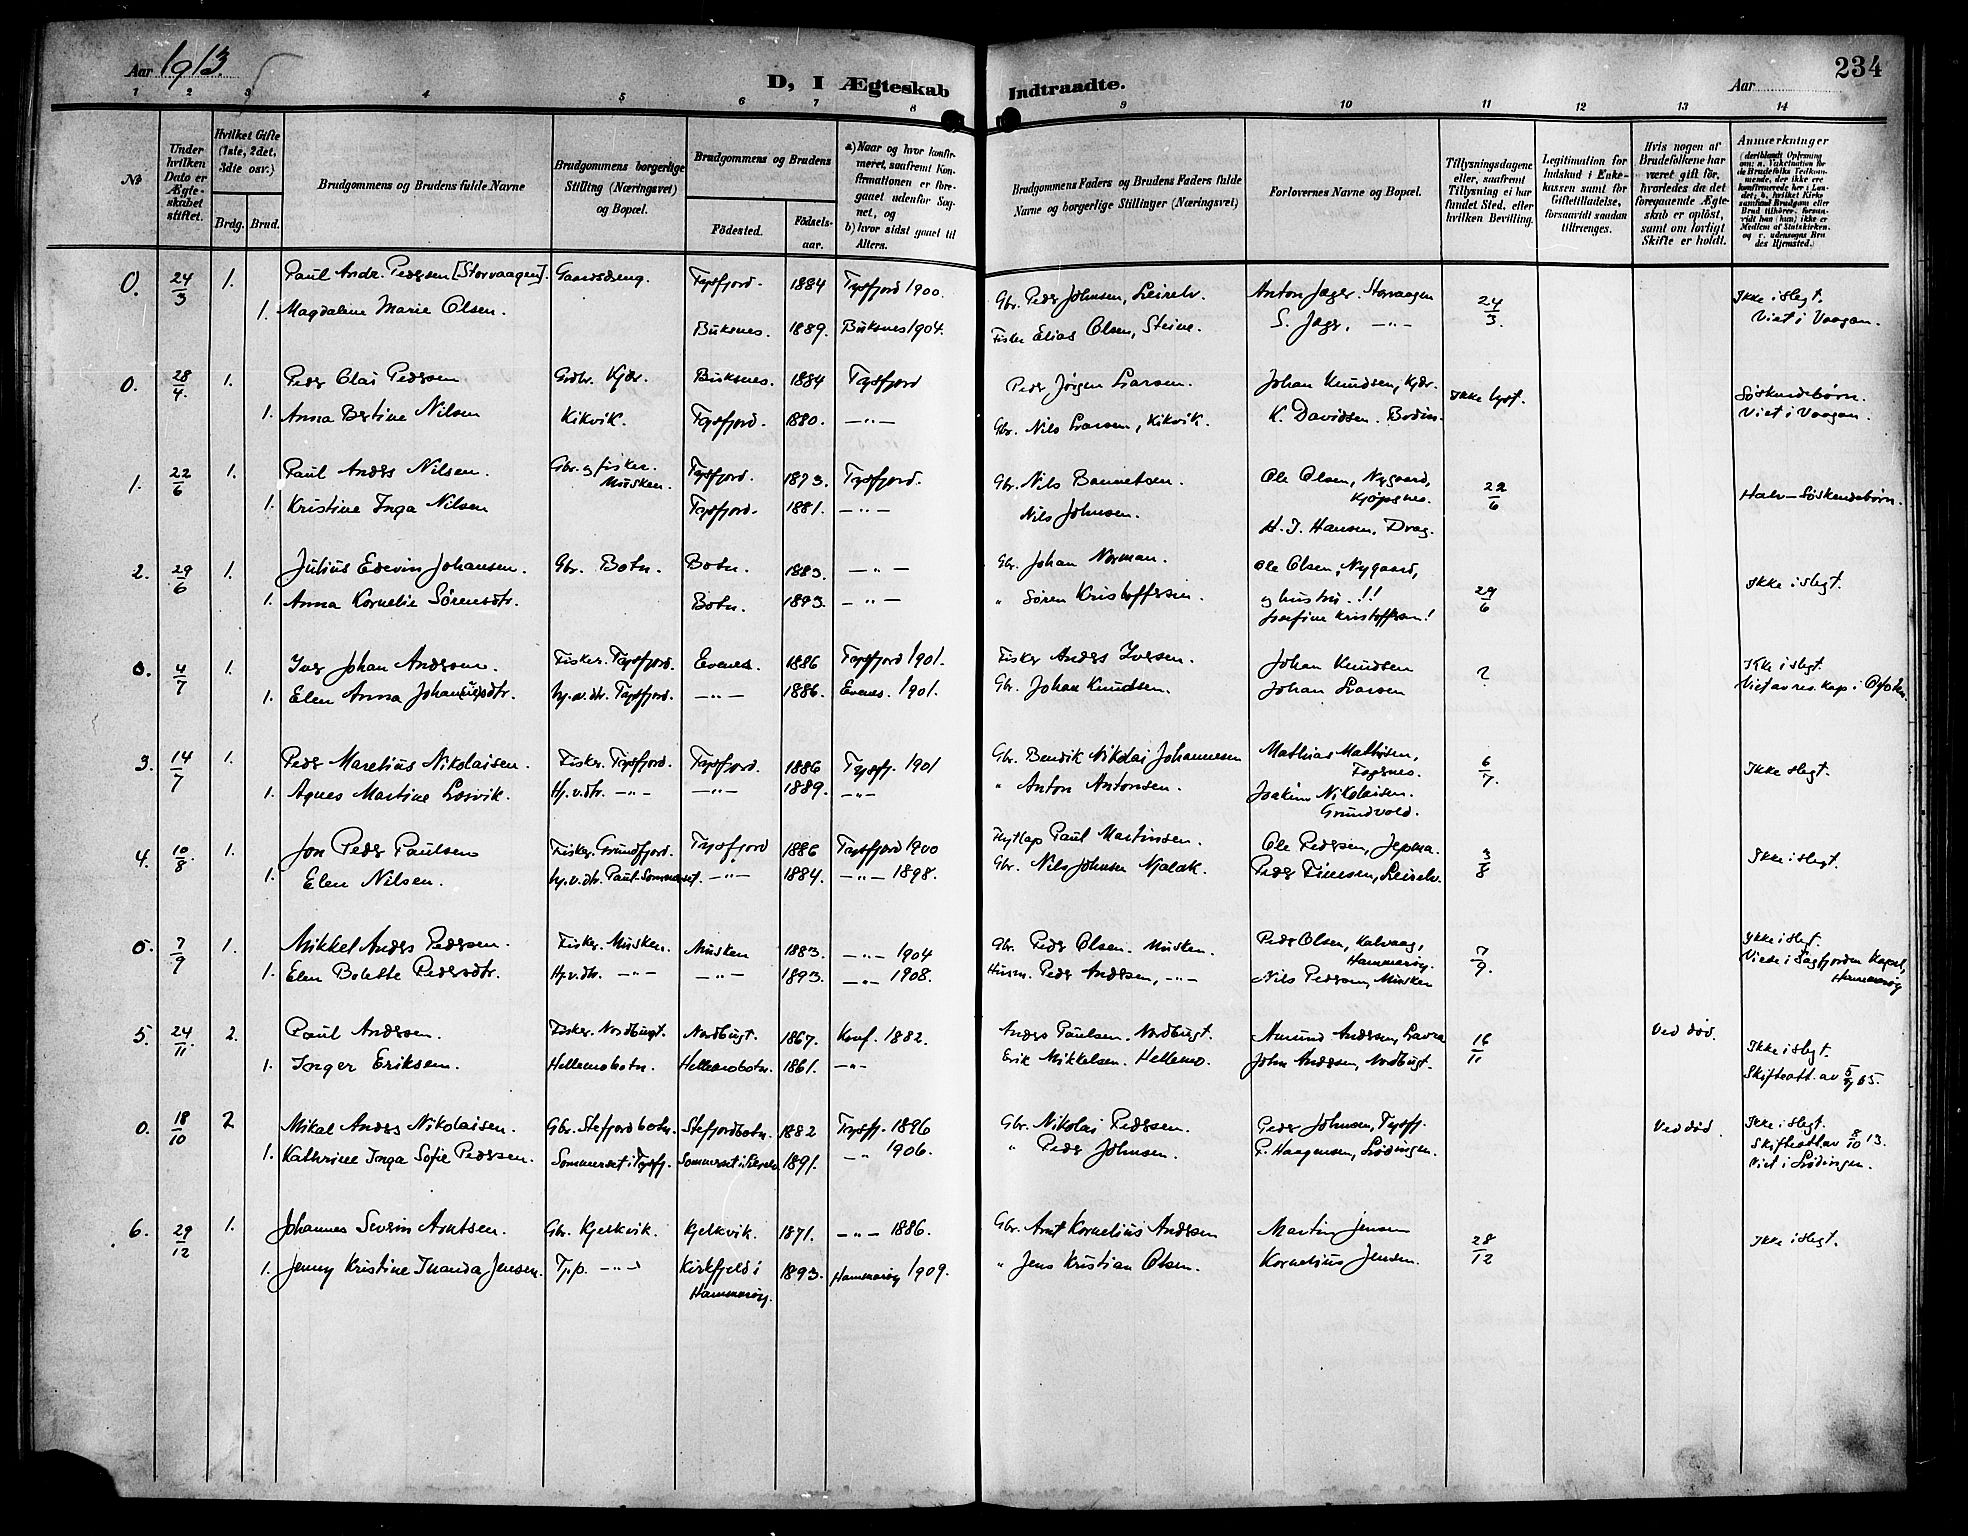 Aar 1913.
D, I Ægteskab
Indtraadte.
Aar
234
1 2 3 4 5 6 7 8 9 10 11 12 13 14
No
Under hvilken Dato er Ægteskabet stiftet.
Hvilket Gifte (1ste, 2det, 3die osv.)
Brdg. Brud.
Brudgommens og Brudens fulde Navne
Brudgommens borgerlige Stilling (Næringsvei) og Bopæl.
Brudgommens og Brudens
Fødested. Fødselsaar.
a) Naar og hvor konfirmeret, saafremt Konfirmationen er foregaaet udenfor Sognet, og
b) hvor sidst gaaet til Alters.
Brudgommens Faders og Brudens Faders fulde Navne og borgerlige Stillinger (Næringsvei)
Forlovernes Navne og Bopæl.
Tillysningsdagene eller, saafremt Tillysning ei har fundet Sted, efter hvilken Bevilling.
Legitimation for Indskud i Enkekassen samt for Giftetilladelse, forsaavidt saadan tiltrænges.
Hvis nogen af Brudefolkene har været gift før, hvorledes da det foregaaende Ægteskab er opløst, samt om lovligt Skifte er holdt.
Anmerkninger
0. 24/3 1. Paul Andr. Pedersen [Storvaagen]. Gaardsdreng. Tysfjord. 1884 Tysfjord 1900. Gbr. Peder Johnsen, Leirelv. Anton Jæger. Storvaagen 24/3 Ikke i slegt.
1. Magdalene Marie Olsen. Buksnes. 1889. Buksnes 1904. Fisker Elias Olsen, Steine. S. Jæger, —"— Viet i Vaagan.
0. 28/4. 1. Peder Olai Pedersen Grdbr. Kjær. Buksnes. 1884 Tysfjord Peder Jørgen Larsen. Johan Knudsen, Kjær. Ikke lyst. Søskendebørn.
1. Anna Bertine Nilsen Kikvik. Tysfjord. 1880. —"— Gbr. Nils Larsen, Kikvik. K. Davidsen. Bodin. Viet i Vaagan.
1. 22/6 1. Paul Anders Nilsen. Gbr. og fisker. Musken. Tysfjord. 1873. Tysfjord. Gbr. Nils Bannetsen. Ole Olsen, Nygaard, Kjøpsnes. 22/6 Halv-Søskendebørn.
1. Kristine Inga Nilsen Tysfjord. 1881. —"— Nils Johnsen. H. J. Hansen, Drag.
2. 29/6 1. Julius Edevin Johansen. Gbr. Botn. Botn. 1883. —"— Gbr. Johan Norman. Ole Olsen, Nygaard, Ikke i slegt.
1. Anna Kornelie Sørensdtr. Botn. 1893. —"— " Søren Kristoffersen. og hustru.!! Josefine Kristoffersen! 29/6
0. 4/7 1. Iver Johan Andersen. Fisker. Tysfjord. Evenes. 1886 Tysfjord 1901. Fisker Anders Iversen. Johan Knudsen ? Ikke i slegt.
1. Elen Anna Johansdtr. hj.v.dtr. Tysfjord. —"— 1886. Evenes. 1901. Gbr. Johan Knudsen. Johan Larsen Viet av res. kap. i Ofoten.
3. 14/7 1. Peder Maretius Nikolaisen. Fisker. Tysfjord. Tysfjord. 1886 Tysfj. 1901 Gbr. Bendik Nikolai Johannesen Mathias Mathisen, 6/7. Ikke slegt.
1. Agnes Martine Lorvik. Hj.v.dtr. —"— —"— 1889. —"— " Anton Antonsen. Joakim Nikolaisen. Grundvold.
4. 10/8 1. Jon Peder Paulsen Fisker. Grundfjord. Tysfjord 1886 Tysfjord 1900 Flytlap Paul Martinsen. Ole Pedersen, Jepma. 3/8 Ikke i slegt.
1. Elen Nilsen. hj.v.dtr. Paul-Sommerset. —"— 1884. —"— 1898. Gbr. Nils Johnsen Njalak. Peder Simonsen, Leirelv.
0. 7/9 1. Mikkel Anders Pedersen. Fisker. Musken. Musken 1883. —"— 1904 Gbr. Peder Olsen. Musken. Peder Olsen, Kalvaag, Hammarøy. 7/9. Ikke i slegt.
1. Elen Bolette Pedersdtr. Hj.v.dtr. —"— —"— 1893. —"— 1908. Husm. Peder Andersen, —"— Nils Pedersen, Musken Viede i Sagfjorden Kapel, Hammarøy
5. 24/11. 2. Paul Andersen. Fisker. Nordbugt. Nordbugt. 1867. Konf. 1882. Anders Paulsen. Nordbugt. Amund Andersen, 16/11 Ved død. Ikke i slegt.
1. Inger Eriksen. Hellemobotn. Hellemobotn. 1861. —"— Erik Mikkelsen. Hellemo. John Andersen, Nordbugt. Skifteatt. av
0. 18/10 2 Mikal Anders Nikolaisen. Gbr. Stefjordbotn. Stefjordbotn. 1882 Tysfj. 1896 Gbr. Nikolai Pedersen. Peder Johnsen, Tysfj. Ved død. Ikke i slegt.
1. Kathrine Inga Sofie Pedersen. Sommerset i Tysfj. Sommerset i Leirelv. 1891. —"— 1906. " Peder Johnsen. P. Haagensen, Lødingen. Skifteatt. av 8/10 13.
Viet i Lødingen.
6. 29/12 1. Johannes Severin Arntsen. Gbr. Kjelkvik. Kjelkvik. 1871. —"— 1886. Gbr. Arnt Kornelius Andersen Martin Jensen 28/12 Ikke i slegt.
1. Jenny Kristine Inanda Jensen. Tj.p. —"— Kirkfjeld i Hammarøy. 1893. Hammarøy 1909. " Jens Kristian Olsen. Kornelius Jensen.